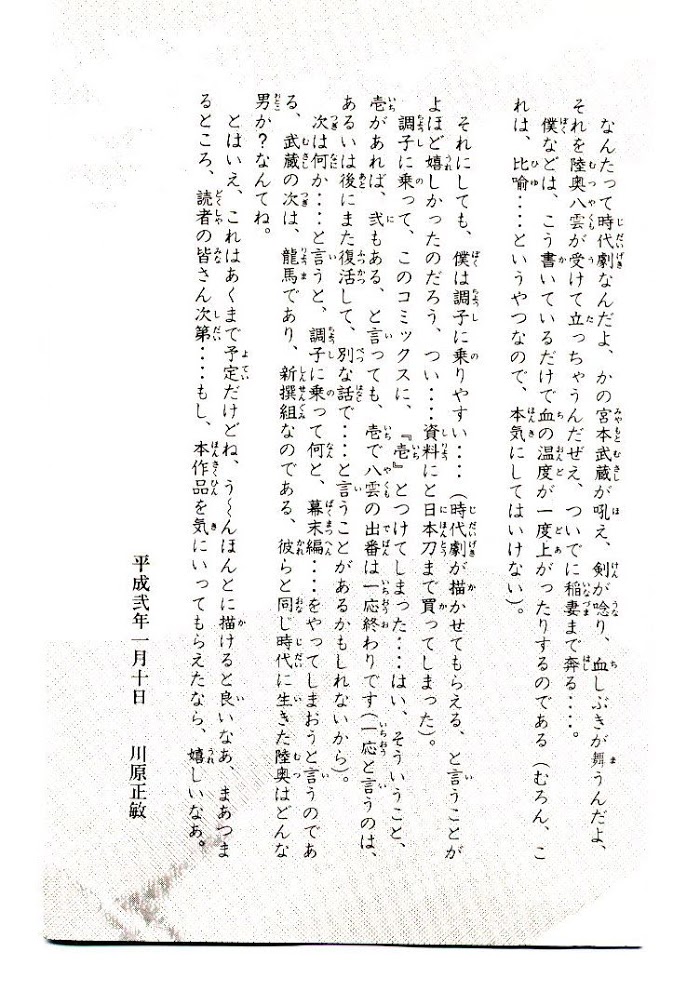 なんたって時代劇なんだよ、かの宮本武蔵が吼え、剣が唸り、血しぶきが舞うんだよ、
それを陸奥八雲が受けて立っちゃうんだぜえ、ついでに稲妻まで奔る････。
僕などは、こう書いているだけで血の温度が一度上がったりするのである（むろん、こ
れは、比喩････というやつなので、本気にしてはいけない）。
それにしても、僕は調子に乗りやすい････（時代劇が描かせてもらえる、と言うことが
よほど嬉しかったのだろう、つい････資料にと日本刀まで買ってしまった）。
調子に乗って、このコミックスに、『壱』とつけてしまった････はい、そういうこと、
壱があれば、弐もある、と言っても、壱で八雲の出番は一応終わりです（一応と言うのは、
あるいは後にまた復活して、別な話で････と言うことがあるかもしれないから）。
次は何か････と言うと、調子に乗って何と、幕末編････をやってしまおうと言うのであ
る、武蔵の次は、龍馬であり、新撰組なのである、彼らと同じ時代に生きた陸奥はどんな
男か？なんてね。
とはいえ、これはあくまで予定だけどね、う〜んほんとに描けると良いなあ、まあつま
るところ、読者の皆さん次第････もし、本作品を気にいってもらえたなら、嬉しいなぁ。
平成弐年一月十日　川原正敏